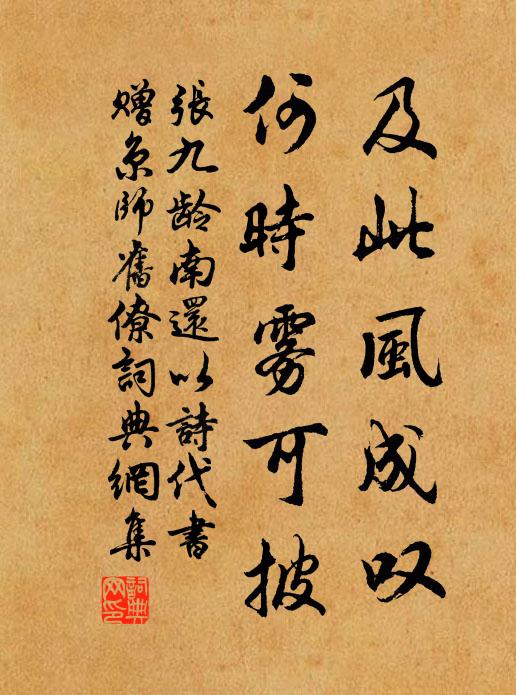 及此風成叹
何時雾可披
張九龄南還以詩代書
赠京師舊僚詞典網集
詞典网印